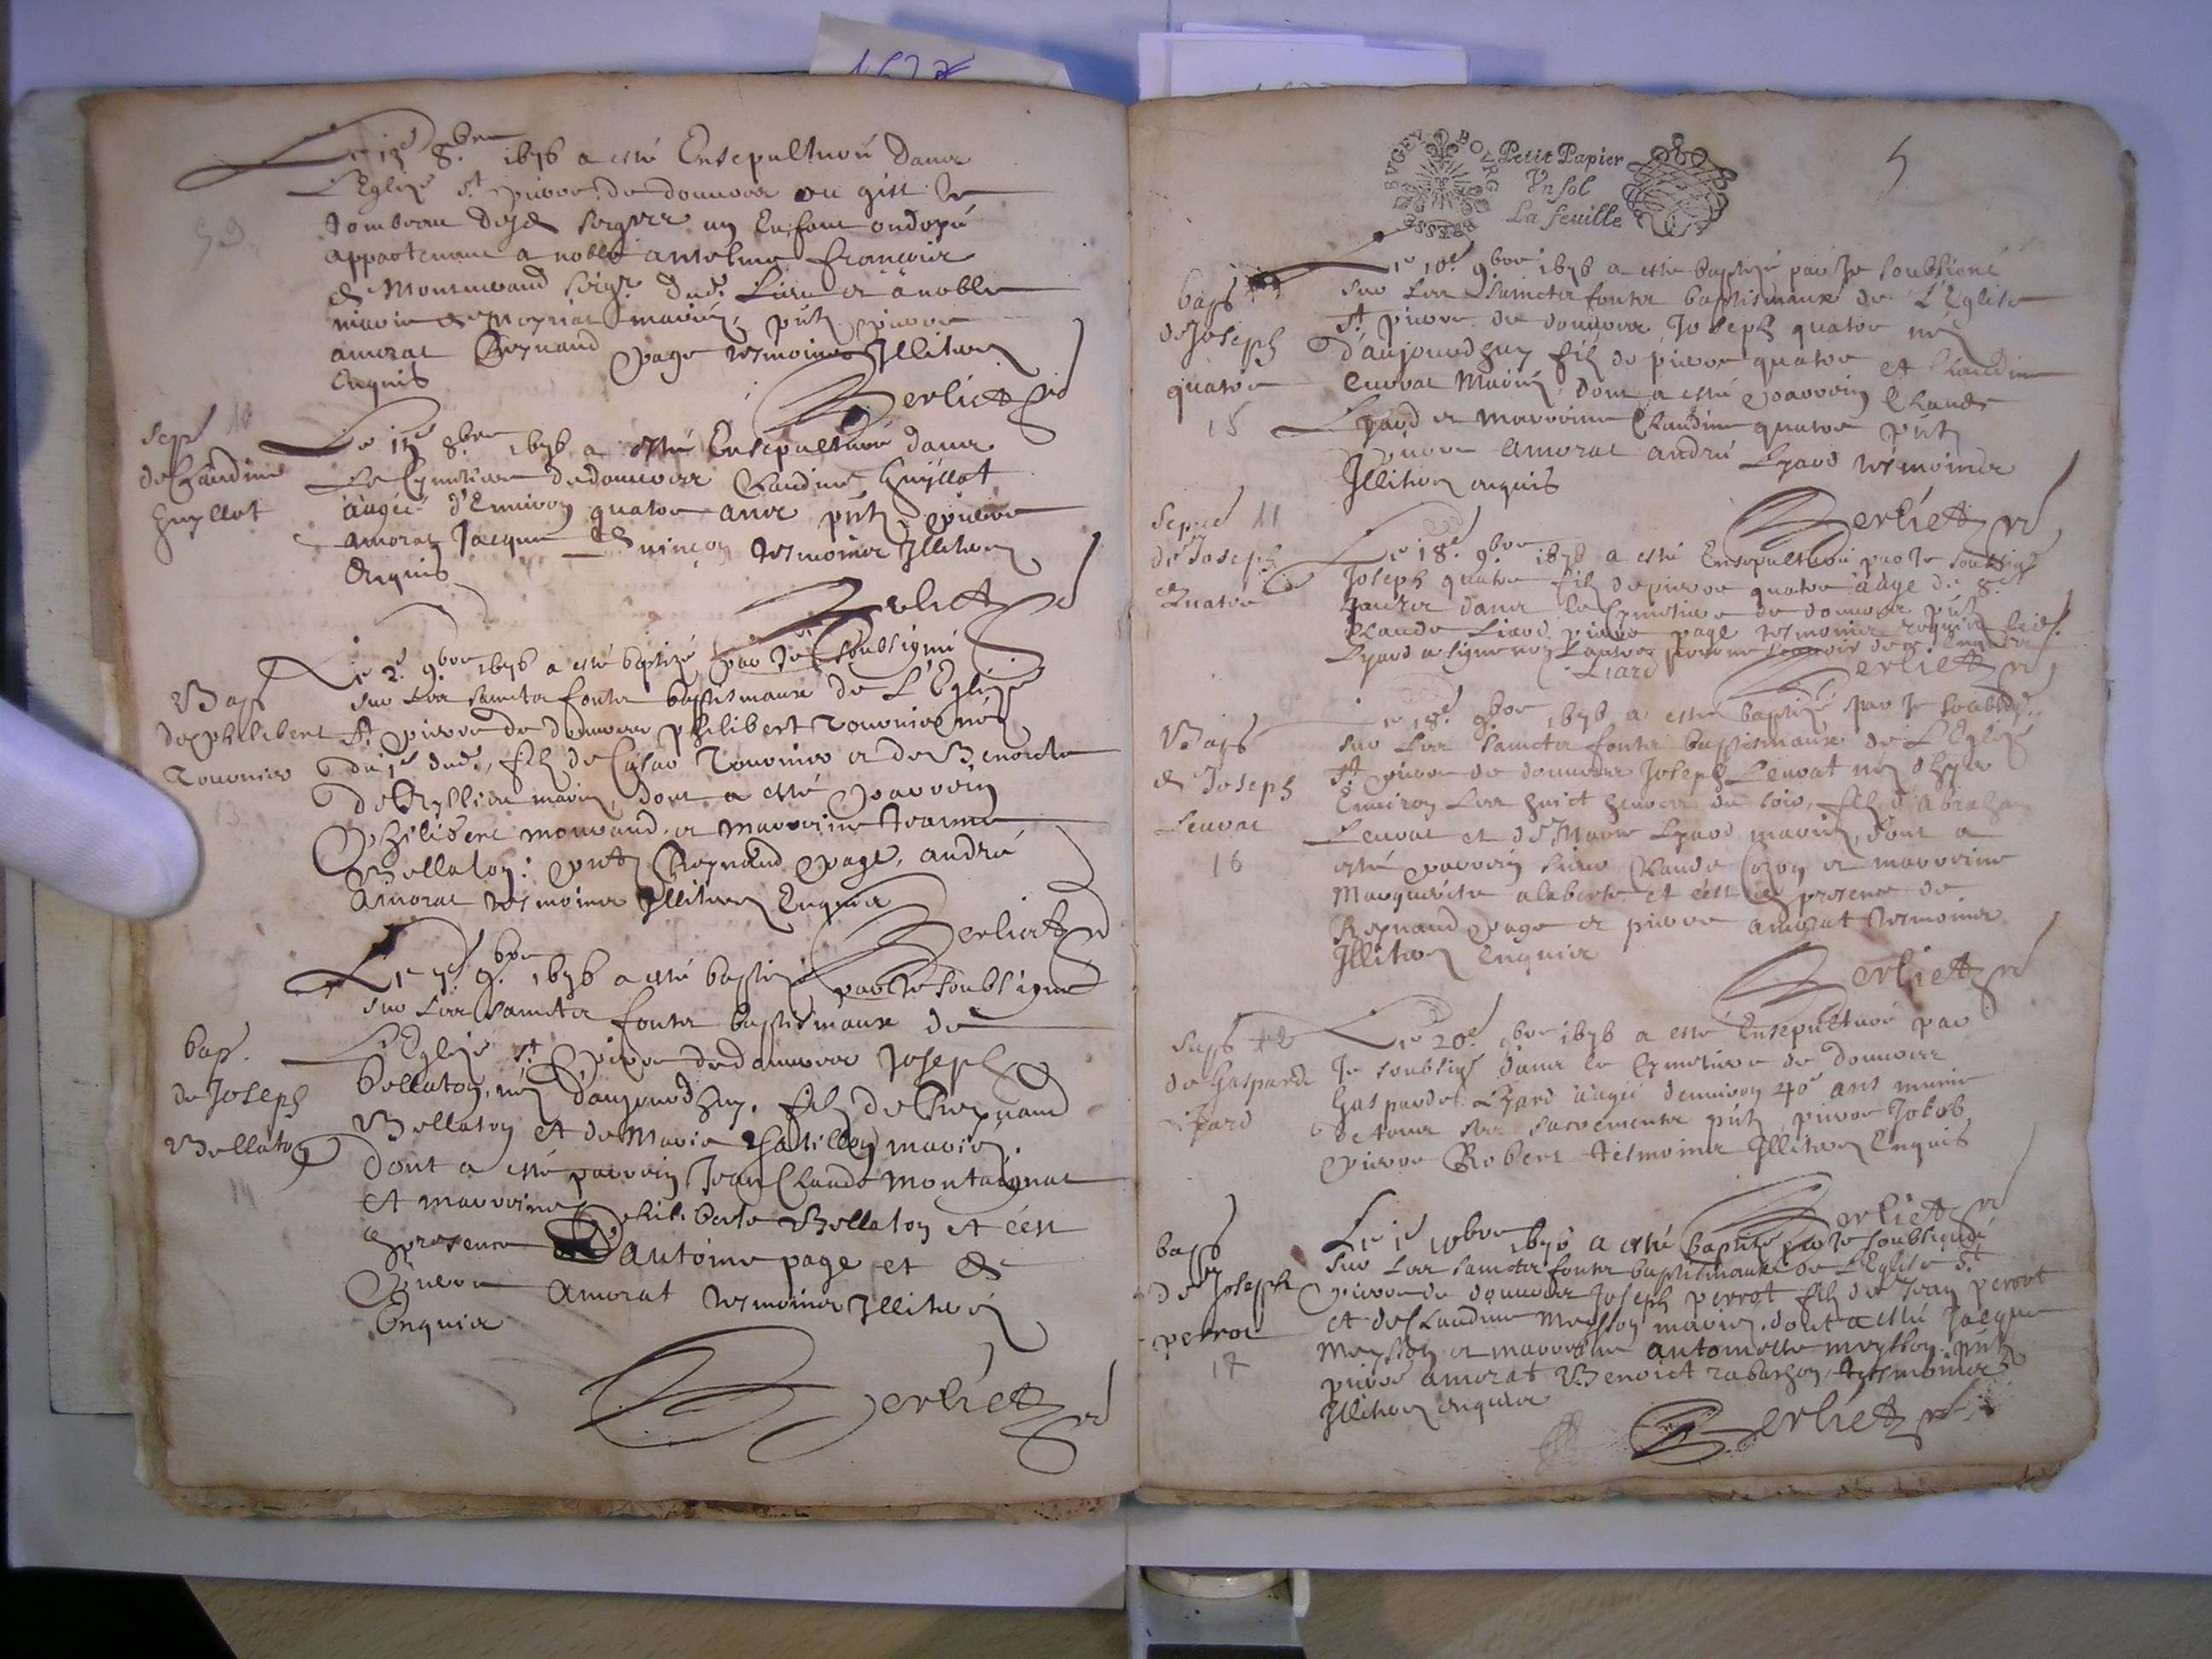 Le 13e 8bre 1676 a esté Ensepulturé dans
L'Eglize St pierre de douvres ou gist le
tombeau des seigrs un Enfant ondoyé
appartenant a noble antelme françois
de Montmerand seigr dud. Lieu et a noble
marie de Moyriat mariés, pnts pierre
amorat Reynaud page tesmoins Illiteres
Enquis
Berliet
Sep 10
de Claudine
Guyllot
Le 15e 8bre 1676 a esté Ensepulturé dans
Le Cymetiere de douvres Claudine Guyllot
aagée d'Environ quatre ans pnts pierre
amorat Jacque tesmoins Illiteres
Enquis
Berliet
Bap
de philibert
Tournier
13
Le 2e 9bre 1676 a esté baptizé par Je soubsigné
sur Les saincts fonts baptismaux de L'Eglize
St pierre de douvres philibert Tournier né
du 1e dud., filz de Cesar Tournier et de Benoite
mariés, dont a esté parrain
Philibert monrand et marraine Jeanne
Bellaton: pnts Reynaud page, andré
amorat tesmoins Illiteres Enquis
Berliet
bap.
de Joseph
Bellaton
14
Le 7e 9bre 1676 a esté baptizé par Je soubsigné
sur Les saincts fonts baptismaux de
L'Eglize St Pierre de douvres Joseph
Bellaton, né d'aujourdhuy, filz de Reynaud
Bellaton et de Marie Chatillon mariés
Dont a esté parrain Jean Claude Montaignat
et marraine Philiberte Bellaton et c'est
en presence D'antoine page et de
Pierre Amorat tesmoins Illiteres
Enquis
Berliet
BUGEY BOURG BRESSE
Petit Papier
Un sol
La feuille
5
bap
de Joseph
quatre
15
Le 10e 9bre 1676 a esté baptizé par Je soubsigné
sur Les saincts fonts baptismaux de L'Eglise
St pierre de douvres Joseph quatre né
d'aujourdhuy filz de pierre quatre et Claudine
Leuvat Mariés, dont a esté parrain Claude
Lyard et marraine Claudine quatre pnts
pierre amorat andré Lyard tesmoins
Illiteres enquis
Berliet
Sepre 11
de Joseph
Quatre
Le 18e 9bre 1676 a esté Ensepulturé par Je soubsigné
Joseph quatre filz de pierre quatre aagé de 8e
jours dans le Cymetiere de douvres pnts
Claude Liard pierre page tesmoins requis Led.
Lyard a signé non l'autre pour ne scavoir de ce Enquis
Liard
Berliet
Bap
de Joseph
Leuvat
16
Le 18e 9bre 1676 a esté baptizé par Je soubsigné
sur Les saincts fonts baptismaux de L'Eglize
St pierre de douvres Joseph Leuvat né d'hyer
Environ Les huict heures du soir, filz d'abraham
Leuvat et de Marie Lyard mariés, dont a
esté parrain sieur Claude Cozon et marraine
Marguerite alaberte et c'est en presence de
Reynaud page et pierre amorat tesmoins
Illiteres Enquis
Berliet
Sep 12
de Gasparde
Liard
Le 20e 9bre 1676 a esté Ensepulturé par
Je soubsigné dans le Cymetiere de douvres
Gasparde Lyard aagée denviron 40e ans munie
de tous ses sacrements pnts pierre Jolob
pierre Robert tesmoins Illiteres Enquis
Berliet
bap
de Joseph
perrot
17
Le 1e 10bre 1676 a esté baptizé par Je soubsigné
sur Les saincts fonts baptismaux de L'Eglise St
pierre de douvres Joseph perrot filz de Jean perrot
et de Claudine Meysson mariés, dont a esté Jacque
Meysson et marraine antoinette meysson pnts
pierre amorat Benoict rabarhon tesmoins
Illiteres enquis
Berliet